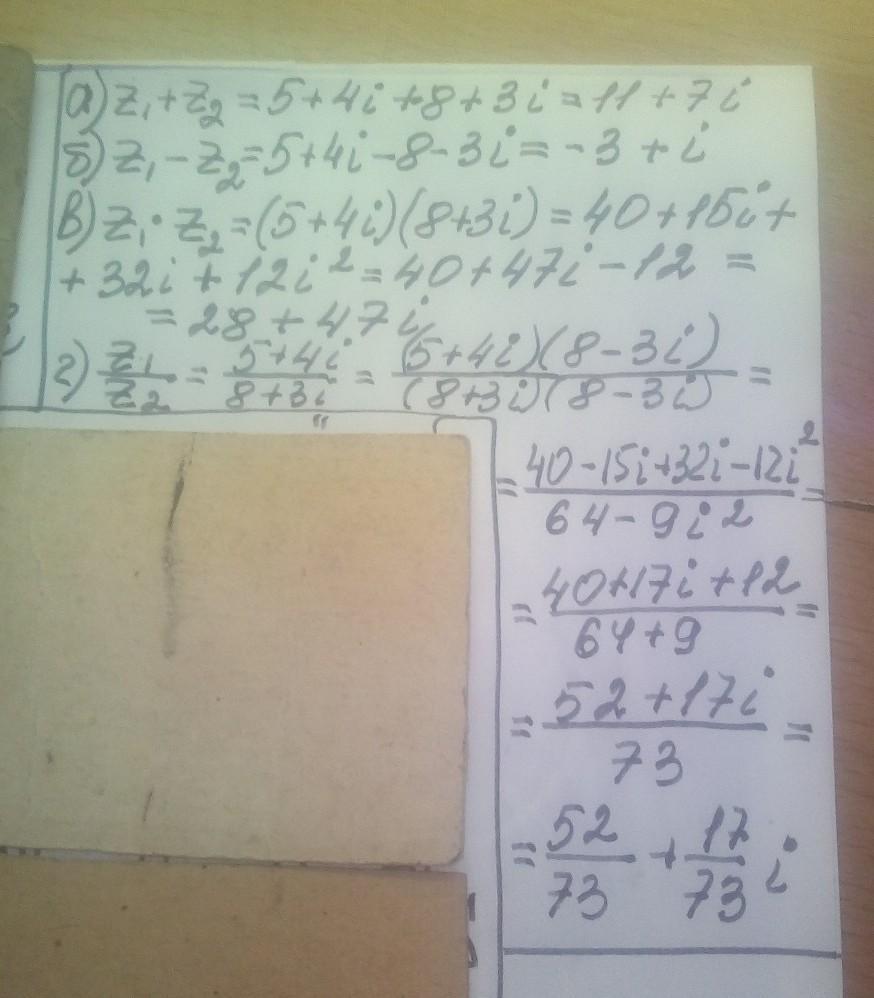 а) z₁+z₂=5+4i+8+3i=11+7i
б) z₁-z₂=5+4i-8-3i=-3+i
в) z₁·z₂=(5+4i)(8+3i)=40+15i+
+32i+12i²=40+47i-12=
=28+47i
г) z₁/z₂ = (5+4i)/(8+3i) = (5+4i)(8-3i)/(8+3i)(8-3i) =
= (40-15i+32i-12i²)/(64-9i²) =
= (40+17i+12)/(64+9) =
= (52+17i)/73 =
= 52/73 + 17/73 i